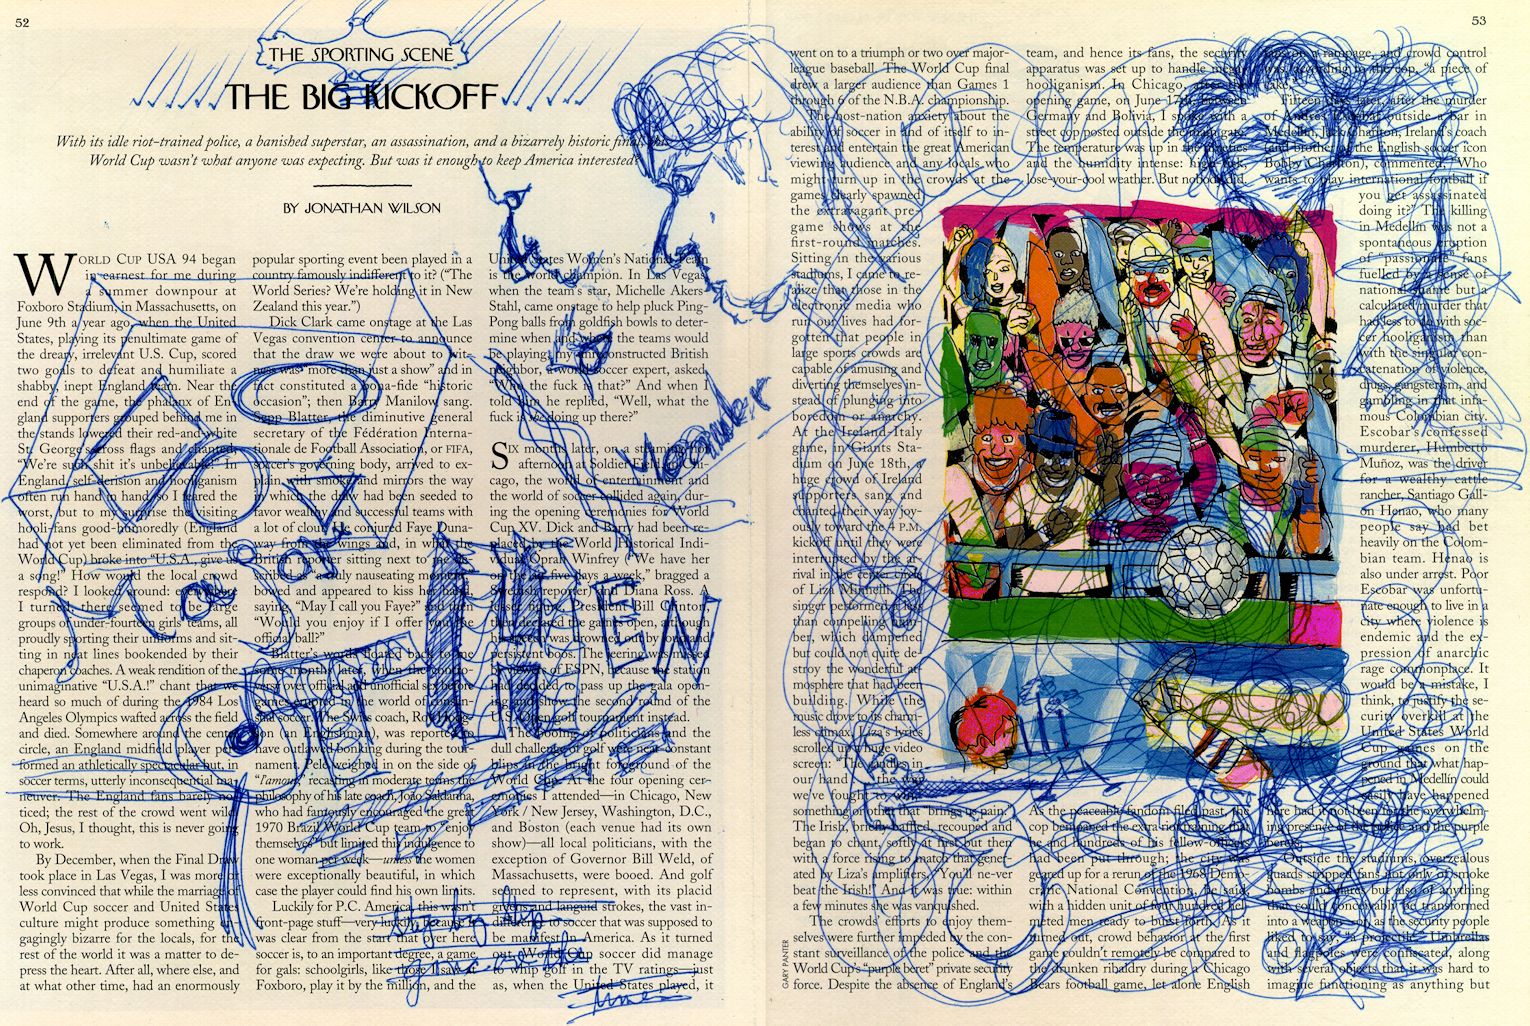 52
THE SPORTING SCENE
THE BIG KICKOFF
With its idle riot-trained police, a banished superstar, an assassination, and a bizarrely historic final,
World Cup wasn't what anyone was expecting. But was it enough to keep America interested?
BY JONATHAN WILSON
WORLD CUP USA 94 began
in earnest for me during
a summer downpour at
Foxboro Stadium, in Massachusetts, on
June 9th a year ago, when the United
States, playing its penultimate game of
the dreary, irrelevant U.S. Cup, scored
two goals to defeat and humiliate a
shabby, inept England team. Near the
end of the game, the phalanx of En-
gland supporters grouped behind me in
the stands lowered their red-and-white
St. George's cross flags and chanted,
"We're such shit it's unbelievable." In
England self-derision and hooliganism
often run hand in hand, so I feared the
worst, but to my surprise the visiting
hooli-fans good-humoredly (England
had not yet been eliminated from the
World Cup) broke into "U.S.A., give us
a song!" How would the local crowd
respond? I looked around: everywhere
I turned, there seemed to be large
groups of under-fourteen girls' teams, all
proudly sporting their uniforms and sit-
ting in neat lines bookended by their
chaperon coaches. A weak rendition of the
unimaginative "U.S.A.!" chant that we
heard so much of during the 1984 Los
Angeles Olympics wafted across the field
and died. Somewhere around the center
circle, an England midfield player per-
formed an athletically spectacular but, in
soccer terms, utterly inconsequential ma-
neuver. The England fans barely no-
ticed; the rest of the crowd went wild.
Oh, Jesus, I thought, this is never going
to work.
By December, when the Final Draw
took place in Las Vegas, I was more or
less convinced that while the marriage of
World Cup soccer and United States
culture might produce something en-
gagingly bizarre for the locals, for the
rest of the world it was a matter to de-
press the heart. After all, where else, and
at what other time, had an enormously
popular sporting event been played in a
country famously indifferent to it? ("The
World Series? We're holding it in New
Zealand this year.")
Dick Clark came onstage at the Las
Vegas convention center to announce
that the draw we were about to wit-
ness was "more than just a show" and in
fact constituted a bona-fide "historic
occasion"; then Barry Manilow sang.
Sepp Blatter, the diminutive general
secretary of the Fédération Interna-
tionale de Football Association, or FIFA,
soccer's governing body, arrived to ex-
plain, with smoke and mirrors the way
in which the draw had been seeded to
favor wealthy and successful teams with
a lot of clout. He conjured Faye Duna-
way from the wings and, in what the
British reporter sitting next to me de-
scribed as "a truly nauseating moment,"
bowed and appeared to kiss her hand,
saying, "May I call you Faye?" and then
"Would you enjoy if I offer you the
official ball?"
Blatter's words floated back to me
some months later, when the
over official and unofficial sex before
games erupted in the world of
soccer. The Swiss coach, Roy Hodg-
son (an Englishman), was reported to
have outlawed bonking during the tour-
nament. Pele weighed in on the side of
"l'amour," recasting in moderate terms the
philosophy of his late coach, João Saldanha,
who had famously encouraged the great
1970 Brazil World Cup team to enjoy
themselves but limited this indulgence to
one woman per week—unless the women
were exceptionally beautiful, in which
case the player could find his own limits.
Luckily for P.C. America, this wasn't
front-page stuff—very luckily, because it
was clear from the start that over here
soccer is, to an important degree, a game
for gals: schoolgirls, like those I saw at
Foxboro, play it by the million, and the
United States Women's National Team
is the world champion. In Las Vegas,
when the team's star, Michelle Akers-
Stahl, came onstage to help pluck Ping-
Pong balls from goldfish bowls to deter-
mine when and where the teams would
be playing, my unreconstructed British
neighbor, a world soccer expert, asked,
"Who the fuck is that?" And when I
told him he replied, "Well, what the
fuck is she doing up there?"
SIX months later, on a steaming hot
afternoon at Soldier Field, in Chi-
cago, the worlds of entertainment and
the world of soccer collided again, dur-
ing the opening ceremonies for World
Cup XV. Dick and Barry had been re-
placed by the World Historical Indi-
viduals Oprah Winfrey ("We have her
on the air five days a week," bragged a
Swedish reporter) and Diana Ross. A
lesser figure, President Bill Clinton,
then declared the games open, although
his speech was drowned out by loud and
persistent boos. The jeering was missed
by viewers of ESPN, because the station
had decided to pass up the gala open-
ing and show the second round of the
U.S. Open golf tournament instead.
The booing of politicians and the
dull challenge of golf were near-constant
blips in the bright foreground of the
World Cup. At the four opening cer-
emonies I attended—in Chicago, New
York / New Jersey, Washington, D.C.,
and Boston (each venue had its own
show)—all local politicians, with the
exception of Governor Bill Weld, of
Massachusetts, were booed. And golf
seemed to represent, with its placid
greens and languid strokes, the vast in-
difference to soccer that was supposed to
be manifest in America. As it turned
out, World Cup soccer did manage
to whip golf in the TV ratings—just
as, when the United States played, it
53
went on to a triumph or two over major-
league baseball. The World Cup final
drew a larger audience than Games 1
through 6 of the N.B.A. championship.
The host-nation anxiety about the
ability of soccer in and of itself to in-
terest and entertain the great American
viewing audience and any locals who
might turn up in the crowds at the
games clearly spawned
the extravagant pre-
game shows at the
first-round matches.
Sitting in the various
stadiums, I came to re-
alize that those in the
electronic media who
run our lives had for-
gotten that people in
large sports crowds are
capable of amusing and
diverting themselves in-
stead of plunging into
boredom or anarchy.
At the Ireland-Italy
game, in Giants Sta-
dium on June 18th, a
huge crowd of Ireland
supporters sang and
chanted their way joy-
ously toward the 4 P.M.
kickoff until they were
interrupted by the ar-
rival in the center circle
of Liza Minnelli. The
singer performed a less
than compelling num-
ber, which dampened
but could not quite de-
stroy the wonderful at-
mosphere that had been
building. While the
music drove to its charm-
less climax, Liza's lyrics
scrolled up a huge video
screen: "The candles in
our hand / the way
we've fought to win /
something or other that "brings us pain."
The Irish, briefly baffled, recouped and
began to chant, softly at first but then
with a force rising to match that gener-
ated by Liza's amplifiers, "You'll never
beat the Irish!" And it was true: within
a few minutes she was vanquished.
The crowds' efforts to enjoy them-
selves were further impeded by the con-
stant surveillance of the police and the
World Cup's "purple beret" private security
force. Despite the absence of England's
team, and hence its fans, the security
apparatus was set up to handle mega-
hooliganism. In Chicago, after the
opening game, on June 17th, between
Germany and Bolivia, I spoke with a
street cop posted outside the main gate.
The temperature was up in the nineties
and the humidity intense: high-risk,
lose-your-cool weather. But nobody did.
As the peaceable fandom filed past, the
cop bemoaned the extra riot training that
he and hundreds of his fellow-officers
had been put through; the city was
geared up for a rerun of the 1968 Demo-
cratic National Convention, he said,
with a hidden unit of four hundred hel-
meted men ready to burst forth. As it
turned out, crowd behavior at the first
game couldn't remotely be compared to
the drunken ribaldry during a Chicago
Bears football game, let alone English
fans on a rampage, and crowd control
was, according to the cop, "a piece of
cake."
Fifteen days later, after the murder
of Andrés Escobar outside a bar in
Medellín, Jack Charlton, Ireland's coach
(and brother of the English soccer icon
Bobby Charlton), commented, "Who
wants to play international football if
you get assassinated
doing it?" The killing
in Medellín was not a
spontaneous eruption
of "passionate" fans
fuelled by a sense of
national shame but a
calculated murder that
had less to do with soc-
cer hooliganism than
with the singular con-
catenation of violence,
drugs, gangsterism, and
gambling in that infa-
mous Colombian city.
Escobar's confessed
murderer, Humberto
Muñoz, was the driver
for a wealthy cattle
rancher, Santiago Gall-
on Henao, who many
people say had bet
heavily on the Colom-
bian team. Henao is
also under arrest. Poor
Escobar was unfortu-
nate enough to live in a
city where violence is
endemic and the ex-
pression of anarchic
rage commonplace. It
would be a mistake, I
think, to justify the se-
curity overkill at the
United States World
Cup games on the
ground that what hap-
pened in Medellín could
easily have happened
here had it not been for the overwhelm-
ing presence of the police and the purple
berets.
Outside the stadiums, overzealous
guards stripped fans not only of smoke
bombs and flares but also of anything
that could conceivably be transformed
into a weapon—or, as the security people
liked to say, "a projectile." Umbrellas
and flagpoles were confiscated, along
with several objects that it was hard to
imagine functioning as anything but
GARY PANTER